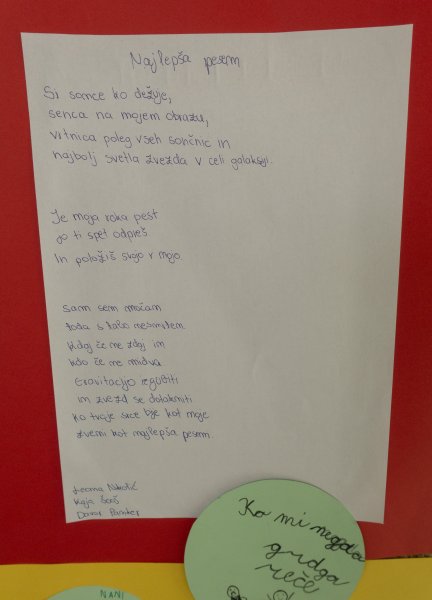 Najlepša pesem
Si sonce ko dežuje,
senca na mojem obrazu,
vrtnica poleg vseh sončnic in
najbolj svetla zvezda v celi galaksiji.
Je moja roka pest
jo ti spet odpreš
In položiš svojo v mojo.
Sam sem močan
toda s tabo nesmrten.
Kdaj če ne zdaj in
kdo če ne midva.
Gravitacijo izgubiti
in zvezd se dotakniti.
Ko tvoje srce bije kot moje
zveni kot najlepša pesem.
Kaja
Davor
Ko mi
grdga
reče
NANI